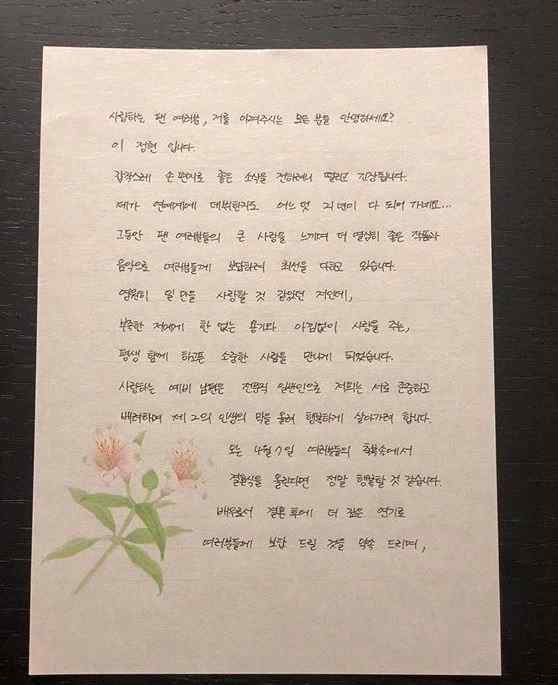 사랑하는 팬 여러분, 저를 아껴주시는 모든 분들 안녕하세요?
이 정현 입니다.
갑작스레 손편지로 좋은 소식을 전하려니 떨리고 긴장됩니다.
제가 연예계에 데뷔한지도 어느 덧 21년이 다 되어 가네요...
그동안 팬 여러분들의 큰 사랑을 느끼며 더 열심히 좋은 작품과
음악으로 여러분들께 보답하려 최선을 다하고 있습니다.
영원히 일 만을 사랑할 것 같았던 저인데,
부족한 저에게 한 없는 용기와 아낌없이 사랑을 주는,
평생 함께 하고픈 소중한 사람을 만나게 되었습니다.
사랑하는 예비 남편은 전문직 일반인으로 저희는 서로 존중하고
배려하며 제 2의 인생의 막을 올려 행복하게 살아가려 합니다.
오는 4월 7일 여러분들의 축복속에서
결혼식을 올린다면 정말 행복할 것 같습니다.
배우로서 결혼 후에 더 깊은 연기로
여러분들께 보답 드릴 것을 약속 드리며,